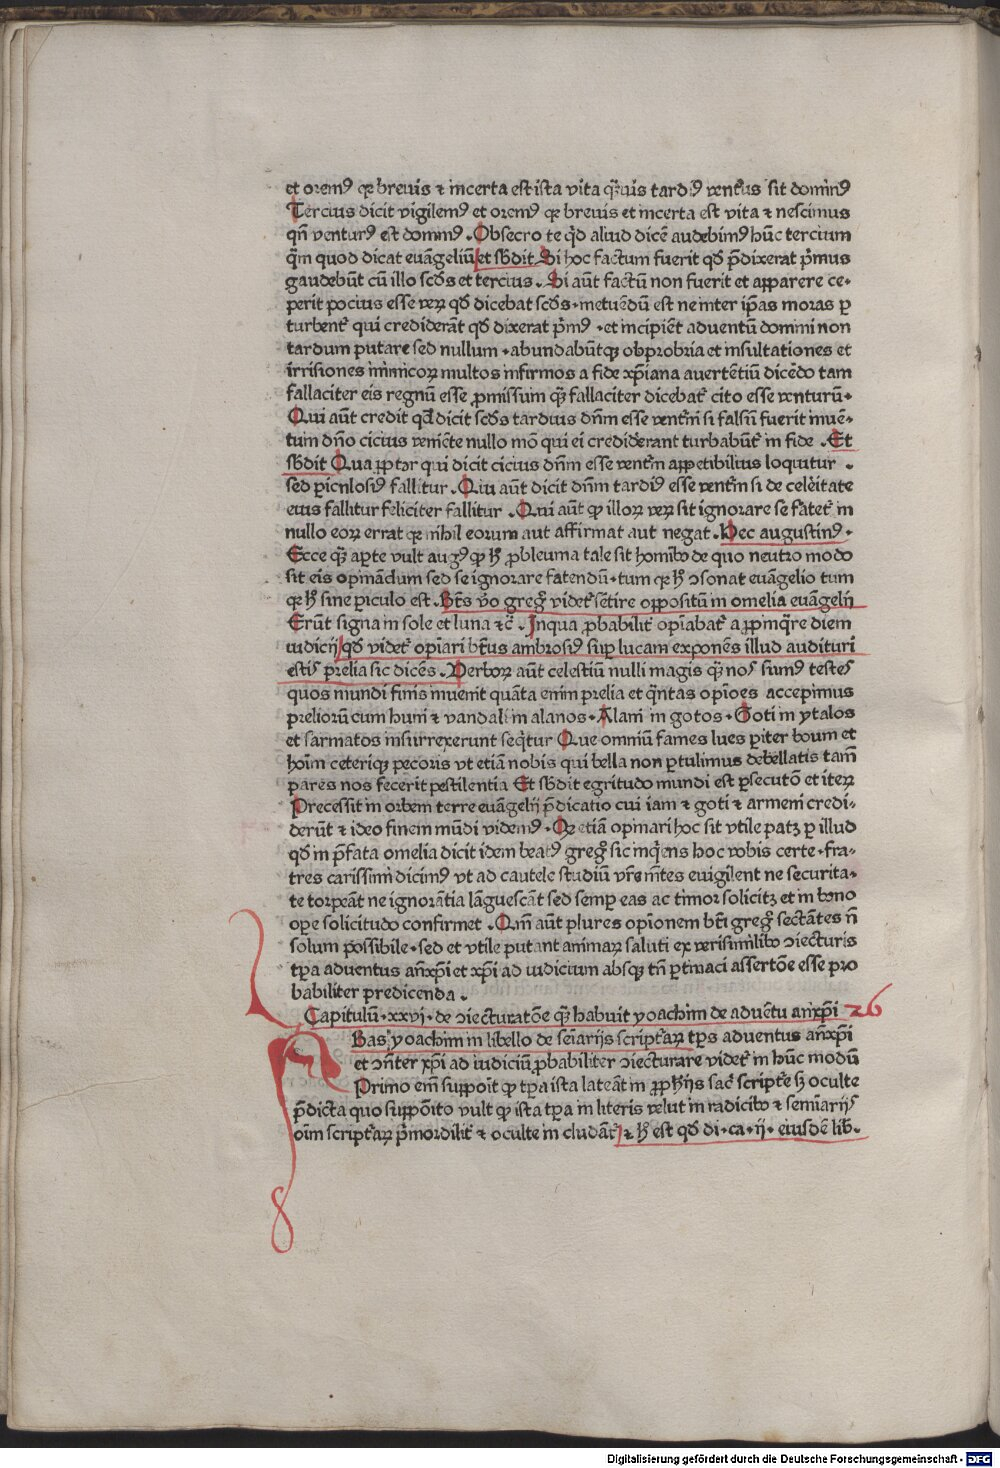 et oremꝰ qꝛ breuis ⁊ incerta est ista vita q̈uis tardiꝰ ventur̄us sit dominꝰ
Tercius dicit vigilemꝰ et oremꝰ qꝛ breuis et incerta est vita ⁊ nescimus
qn̄ venturꝰ est dominꝰ . Obsecro te qd̄ aliud dicē audebimꝰ hūc tercium
q̄m quod dicat euāgeliū et sb̄dit Si hoc factum fuerit qd̄ p̄dixerat p̄mus
gaudebūt cū illo scd̄s et tercius . Si aūt factū non fuerit et apparere ce-
perit pocius esse verꝝ qd̄ dicebat scd̄s · metuēdū est ne inter ip̄as moras ꝑ
turbent᷑ qui crediderāt qd̄ dixerat p̄mꝰ · et incipiēt aduentū domini non
tardum putare sed nullum · abundabūtqꝫ obprobria et insultationes et
irrisiones inimicoꝝ multos infirmos a fide xp̄iana auertētiū dicēdo tam
fallaciter eis regnū esse ꝓmissum qȝ fallaciter dicebat᷑ cito esse venturū ·
Qui aūt credit qd̄ dicit scd̄s tardius dn̄m esse ventur̄m si falsū fuerit inuē-
tum dn̄o cicius veniēte nullo mō qui ei crediderant turbabūt᷑ in fide . Et
sb̄dit Qua ꝓpter qui dicit cicius dn̄m esse ventur̄m appetibilius loquitur .
sed ꝑiculosiꝰ fallitur . Qui aūt dicit dn̄m tardiꝰ esse ventur̄m si de celeritate
eius fallitur feliciter fallitur . Qui aūt ꝙ illoꝝ verꝝ sit ignorare se fatet᷑ in
nullo eoꝝ errat qꝛ nihil eorum aut affirmat aut negat . Hec augustinꝰ .
Ecce qȝ aꝑte vult augꝰ ꝙ h̄ ꝓbleuma tale sit homībꝰ de quo neutro modo
sit eis opinādum sed se ignorare fatendū · tum qꝛ h̄ ↄsonat euāgelio tum
qꝛ h̄ sine ꝑiculo est . Bt̄s v̄o greg᷑ videt᷑ sētire oppositū in omelia euāgelij
Erūt signa in sole et luna ⁊c̄ . Inqua ꝓbabilit᷑ opīabat᷑ appīnq̄re diem
iudicij qd̄ videt᷑ opīari bt̄us ambrosiꝰ suꝑ lucam exponēs illud audituri
estis prelia sic dicēs . Verboꝝ aūt celestiū nulli magis qȝ nos sumꝰ testes
quos mundi finis inuenit quāta enim prelia et q̄ntas opīoēs accepimus
preliorū cum huni ⁊ vandali in alanos · Alani in gotos · Goti in ytalos
et sarmatos insurrexerunt seq̄tur Que omniū fames lues ꝑiter boum et
hoīm ceteriqꝫ pecoris vt etiā nobis qui bella non ꝑtulimus debellatis tam̄
pares nos fecerit pestilentia Et sb̄dit egritudo mundi est ꝑsecutō et iteꝝ
Precessit in orbem terre euāgelij p̄dicatio cui iam ⁊ goti ⁊ armeni credi-
derūt ⁊ ideo finem mūdi videmꝰ . Qꝛ etiā opinari hoc sit vtile patꝫ ꝑ illud
qd̄ in p̄fata omelia dicit idem beatꝰ greg᷑ sic inq̄ens hoc vobis certe · fra-
tres carissimi dicimꝰ vt ad cautele studiū vr̄e mētes euigilent ne securita-
te torpeāt ne ignorātia lāguescāt sed semꝑ eas ac timor solicitꝫ et in bono
oꝑe solicitudo confirmet . Qm̄ aūt plures opīonem bt̄i greg᷑ sectātes n̄
solum possibile · sed et vtile putant animaꝝ saluti ex verisimilibꝰ ↄiecturis
tp̄a aduentus an̄xp̄i et xp̄i ad iudicium absqꝫ tn̄ ꝑtinaci assertōe esse pro
babiliter predicenda .
Capitulū · xxvj · de ↄiecturatōe qȝ habuit yoachim de aduētu an̄xp̄i 26
Abas yoachim in libello de seīarijs scriptar̄ꝝ tp̄s aduentus an̄xp̄i
et ↄn̄ter xp̄i ad iudiciū ꝓbabiliter ↄiecturare videt᷑ in hūc modū
Primo em̄ supponit ꝙ tp̄a ista lateāt in ꝓph̄ijs sac᷑ scripte᷑ sꝫ oculte
p̄dicta quo supposito vult ꝙ ista tp̄a in literis velut in radicibꝰ ⁊ seminarijs
oīm scriptar̄ꝝ p̄mordilit᷑ ⁊ oculte includāt᷑ ⁊ h̄ est qd̄ di · ca · ij · eiusdē lib̄ ·
Digitalisierung gefördert durch die Deutsche Forschungsgemeinschaft - DFG